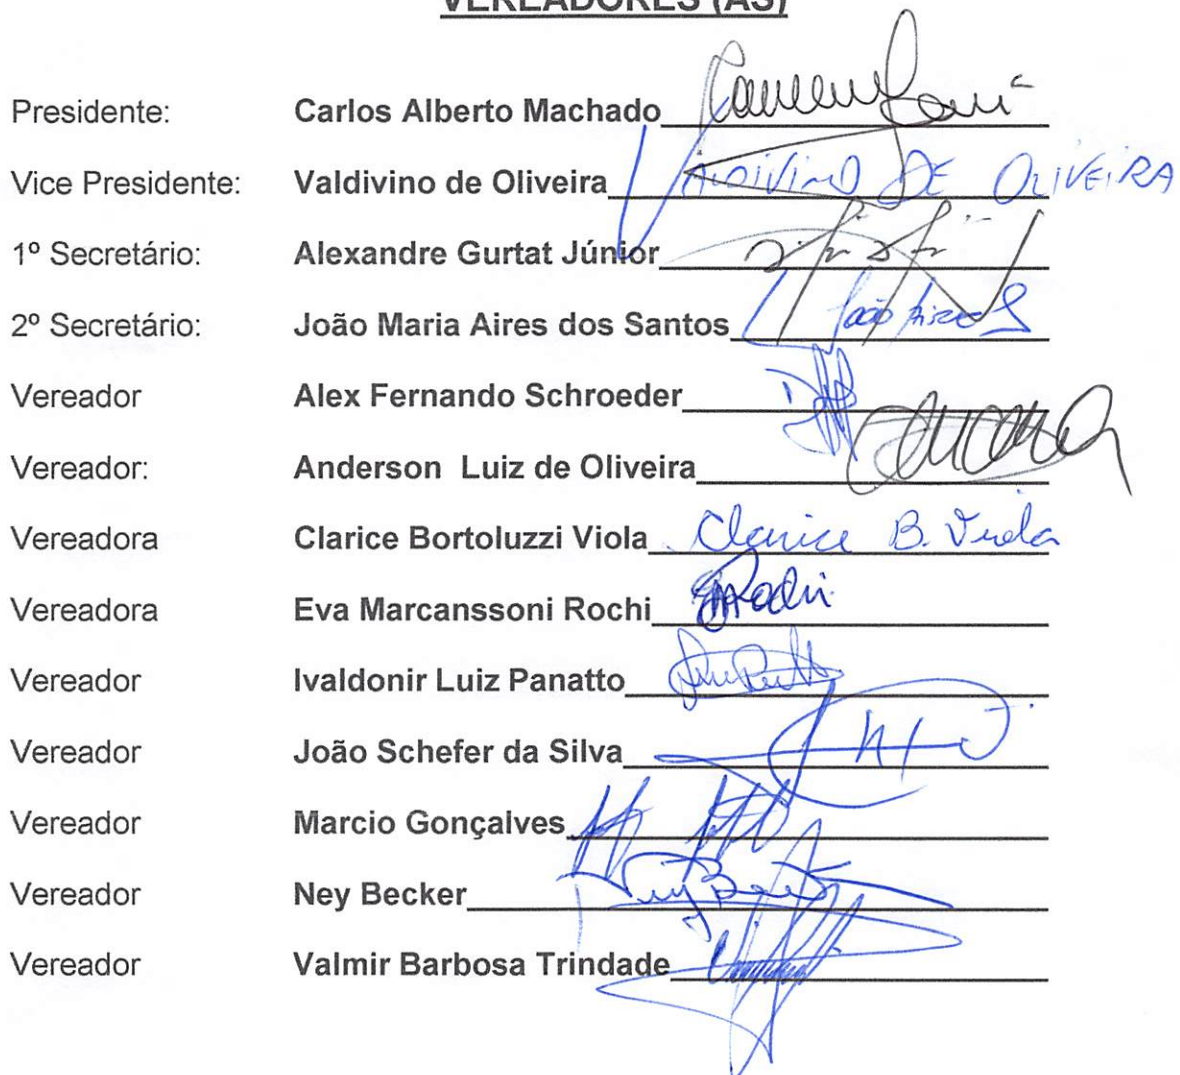 VEREADORES (AS)
Presidente: Carlos Alberto Machado
Vice Presidente: Valdivino de Oliveira VALDIVINO DE OLIVEIRA
1º Secretário: Alexandre Gurtat Júnior
2º Secretário: João Maria Aires dos Santos João Aires S
Vereador Alex Fernando Schroeder
Vereador: Anderson Luiz de Oliveira
Vereadora Clarice Bortoluzzi Viola Clarice B. Viola
Vereadora Eva Marcanssoni Rochi EMRochi
Vereador Ivaldonir Luiz Panatto
Vereador João Schefer da Silva
Vereador Marcio Gonçalves
Vereador Ney Becker Ney Becker
Vereador Valmir Barbosa Trindade